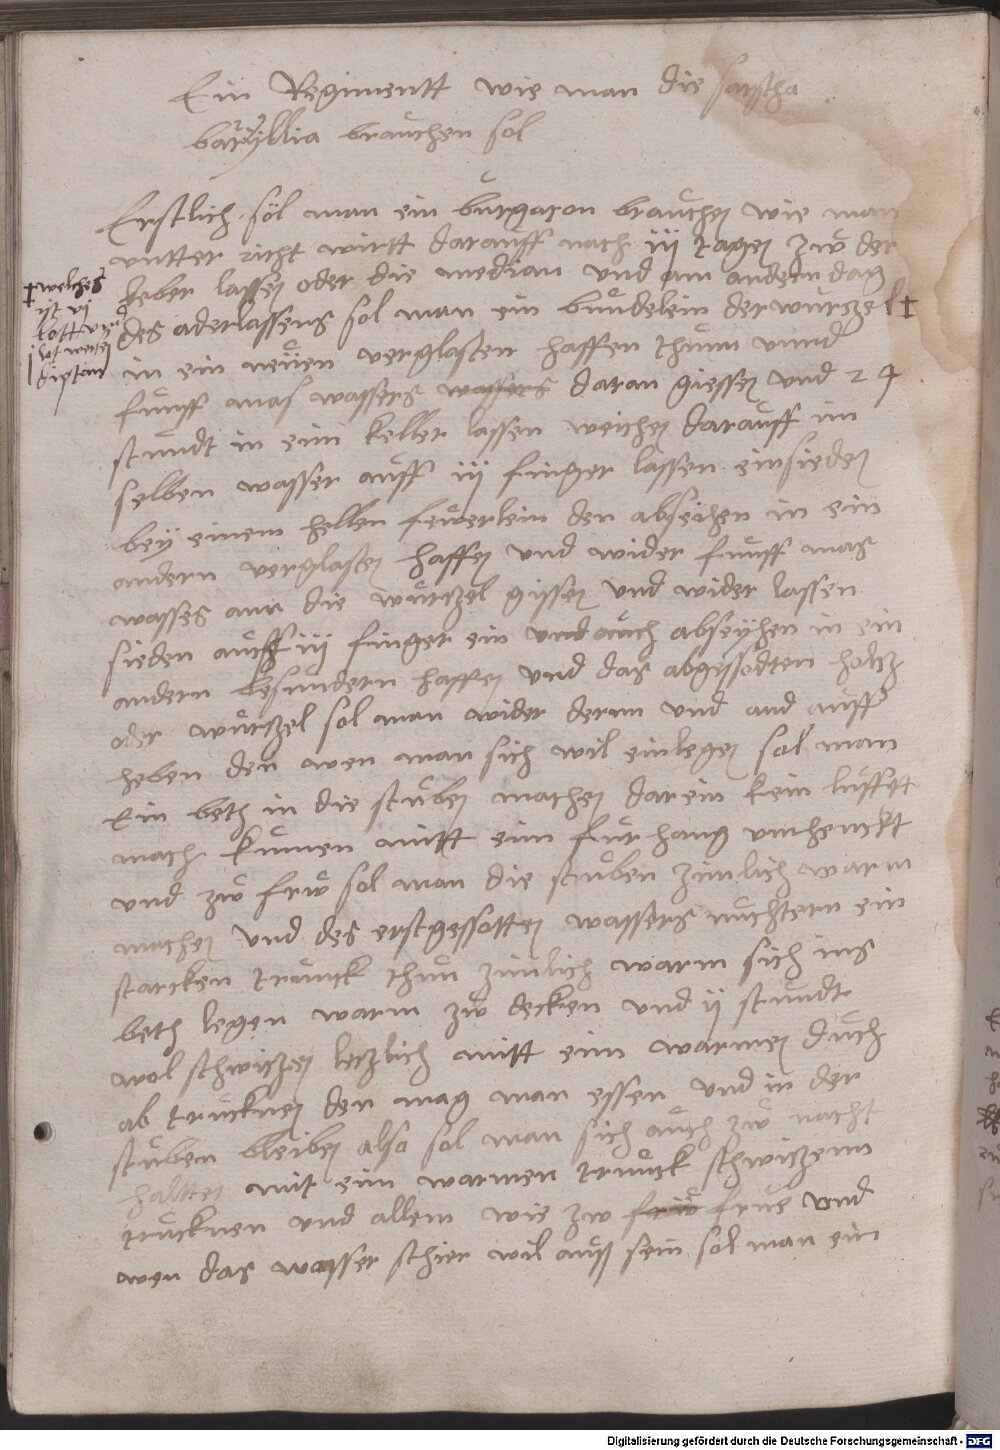 Ein Regimentt wie man die sarstha
barxyllia brauchen sol
Erstlich söl man ein burgacon brauchen wie man
untter richt wirtt darauff nach iij tagen zw der
leber lassen oder die median und am andern dag
des aderlassens sol man ein bundelein der wurszel †
† welches
ist vj
lott und
j lot weiten
diptan
in ein neüen verglasten haffen thunn unnd
funff mas wassers wassers daran giessen und 24
stundt in eim keller lassen weichen darauff im
selben wasser auff iij finger lassen einsieden
bey einem hellen fewerlein den abseihen in ein
andern verglasten haffen und wider funff mas
wassers ann die wurszel gissen und wider lassen
sieden auff iij finger ein und auch abseyhen in ein
andern besundern haffen und das abgessodten holtz
oder wurszel sol man wider derrn und and auff
heben den wen man sich wil einlegen sol man
Ein beth in die stuben machen darein kein lufftt
mach kumen mitt eim furhang umhenckt
und zw frw sol man die stuben zimlich warm
machen und des erstgessotten wassers nuchtern ein
starcken trunck thun zimlich warm sich ins
beth legen warm zw decken und ij stundt
wol schwiczen letzlich mitt eim warmen duch
ab trucknen den mag man essen und in der
stuben bleiben also sol man sich auch zw nacht
haltten mit eim warmen trunck schwiczenn
trucknen und allem wie zw frw frue und
wen das wasser schier wil auß sein sol man ein
Digitalisierung gefördert durch die Deutsche Forschungsgemeinschaft - DFG